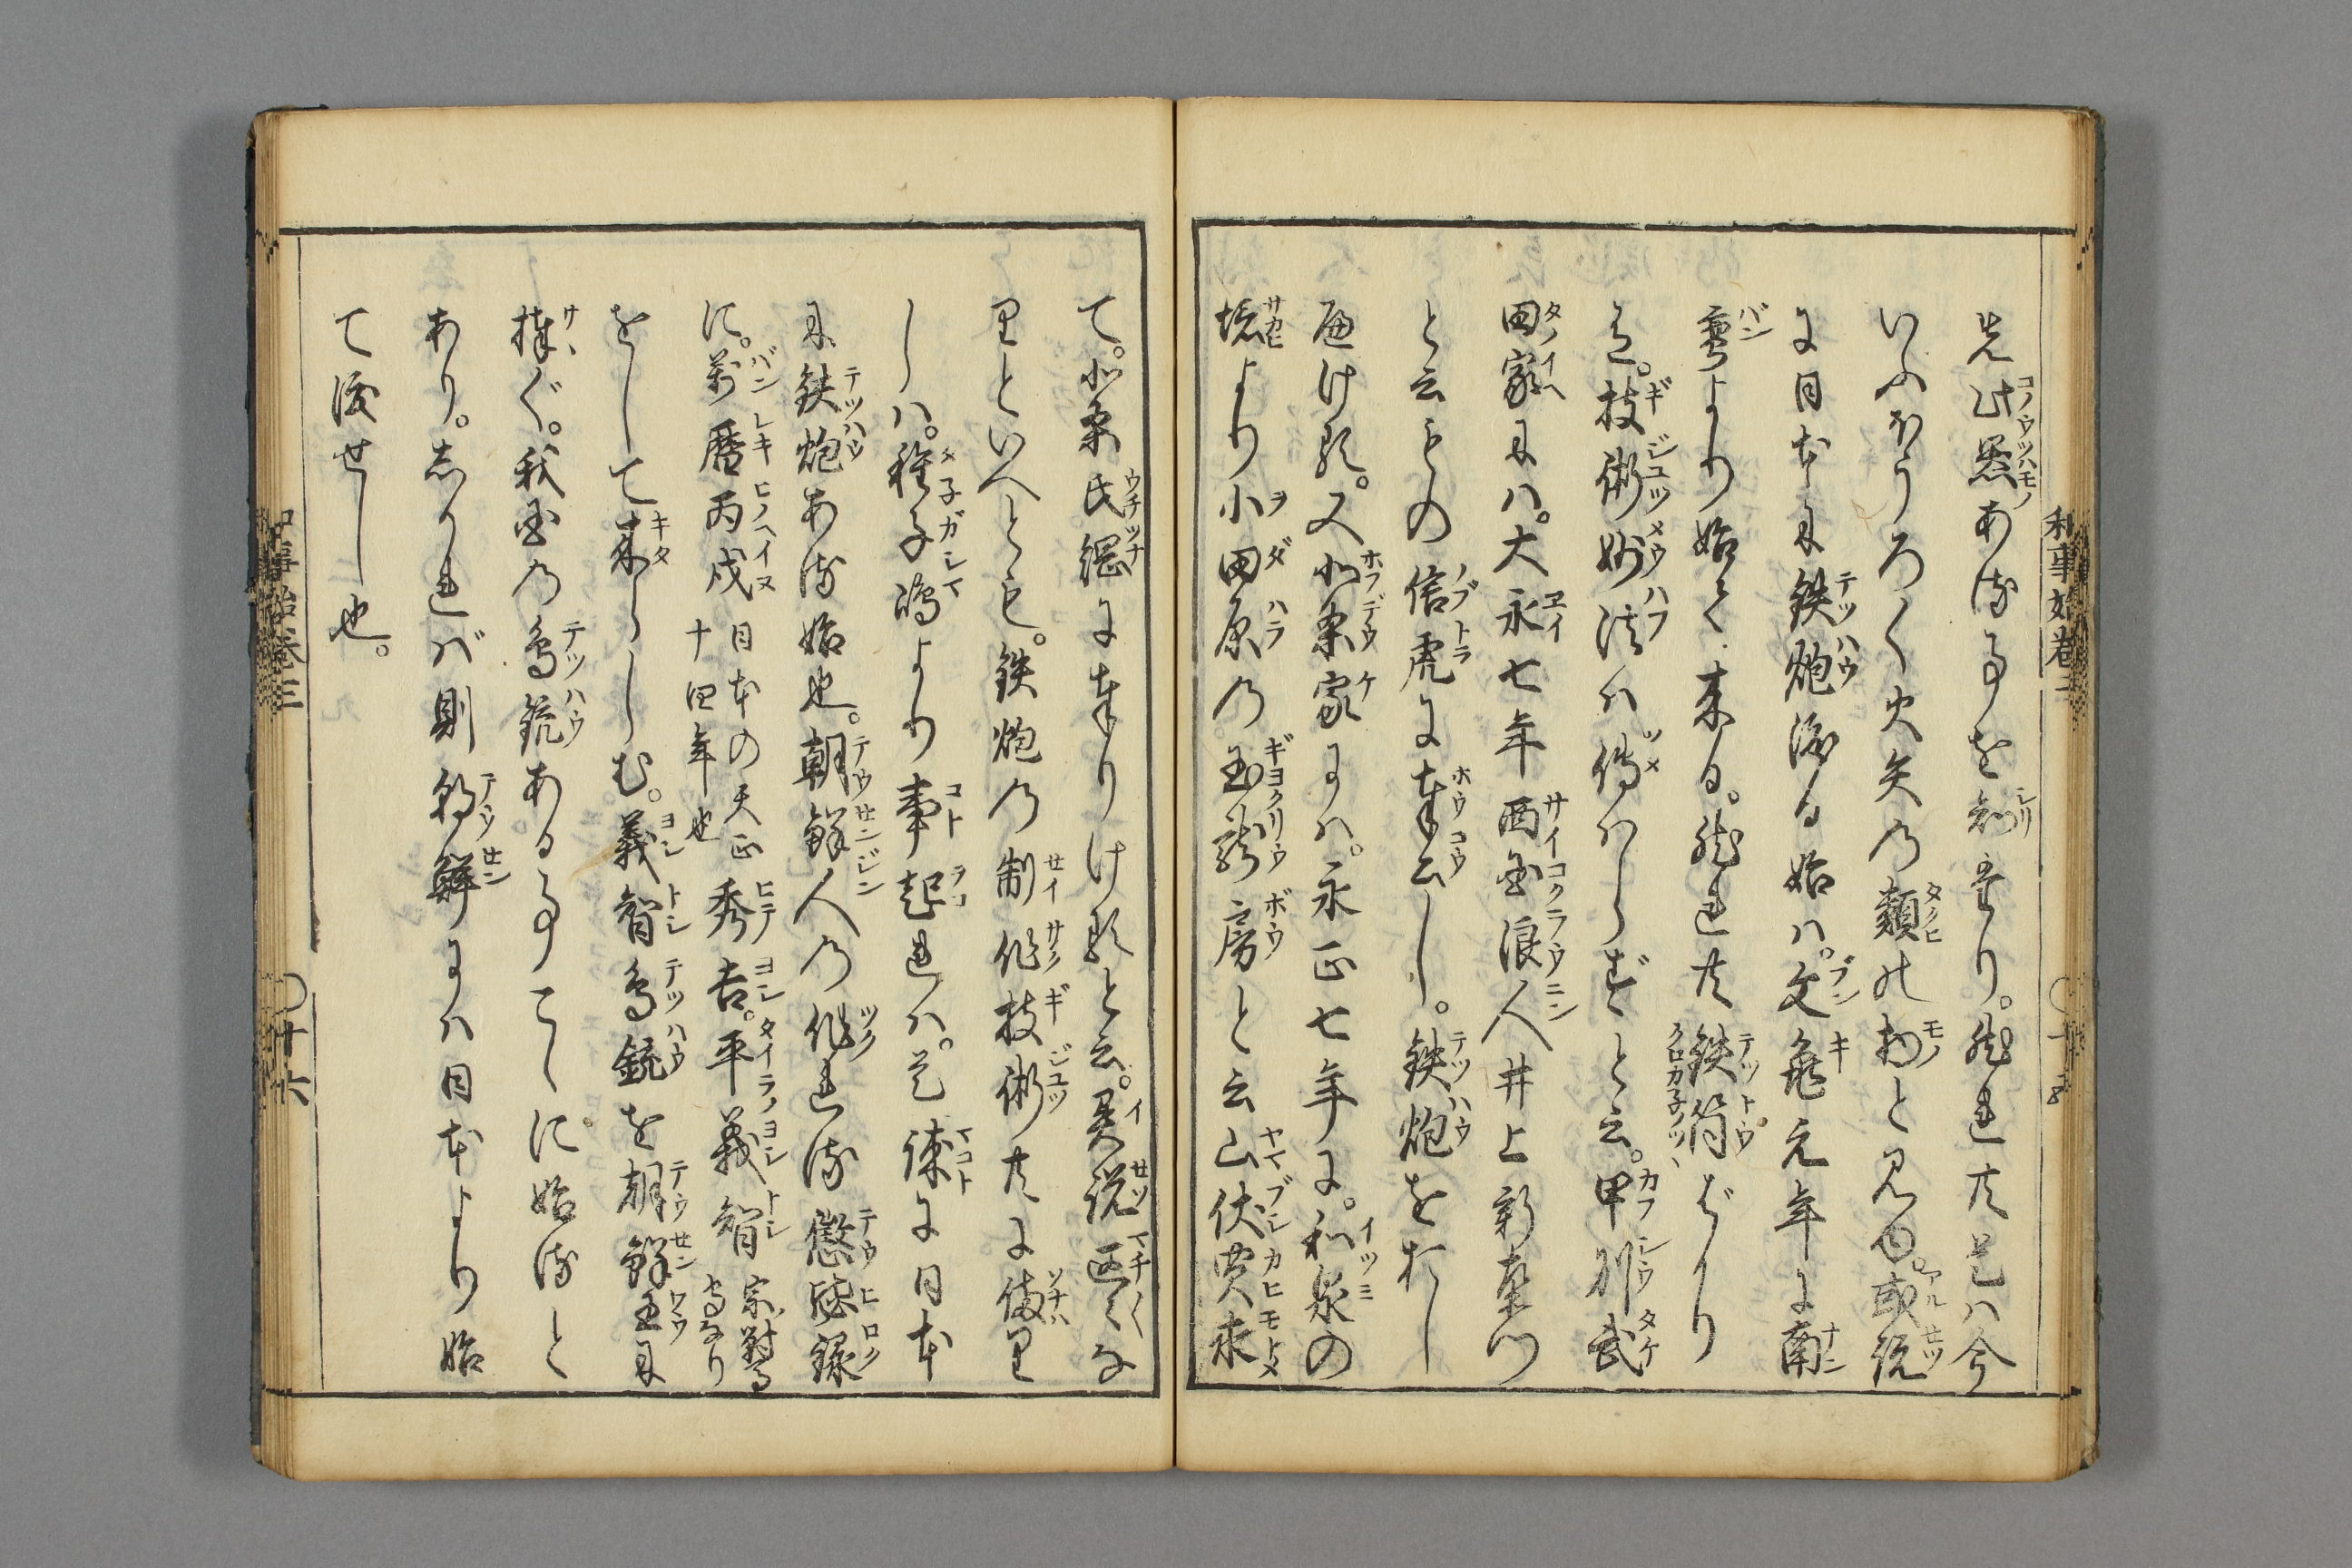 先此器ある事を知たり。然れ共是ハ今
いふほうろく火矢の類の物と見ゆ。或説
に日本に鉄炮渡る始ハ。文亀元年に南
蛮より始て来る。然れ共鉄筒ばかり
にて。技術妙法ハ傳ハらずと云。甲州武
田家にハ。大永七年西国浪人井上新左衛門
と云もの信虎に奉公し。鉄炮をおし
へけり。又北条家にハ。永正七年に。和泉の
堺より小田原の玉瀧房と云山伏買求
和事始巻三
十五
て。北条氏綱に奉りけりと云。異説区々な
りといへとも。鉄炮の制作技術共に備り
しハ。種子嶋より事起れハ。是誠に日本
に鉄炮ある始也。朝鮮人の作れる懲毖録
に。萬暦丙戌日本の天正
十四年也秀吉。平義智宗對馬
守なり
をして来らしむ。義智鳥銃を朝鮮王に
捧ぐ。我国の鳥銃ある事こゝに始ると
あり。しかれバ則朝鮮にハ日本より始
て渡せし也。
和事始巻三
十六